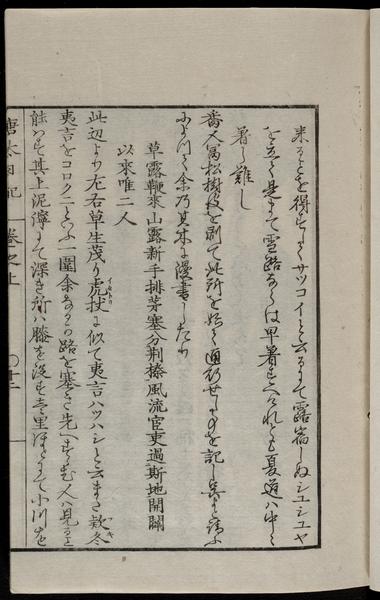 来ることを得すしてサツコイと云るにて露宿しぬシユシユヤ
を立て是まて雪路ならは早着すへけれとも夏道ハ中々
着し難し
番人冨松樹皮を剥て此所を始て通行せしものを記し呉よと請ふ
によつて余乃其木に漫書したり
草露鞭来山露新手排茅塞分荆榛風流官吏過斯地開闢
以来唯二人
此辺より左右草生茂り虎杖に似て夷言ハツハシと云また欵冬
夷言をコロクニと云ふ一圍余なるか路を塞き先へすゝむ人ハ見ること
能はす其上泥濘にて深き所ハ膝を没す壱里ほとにて小川を
唐太日記 巻之上 〇十二